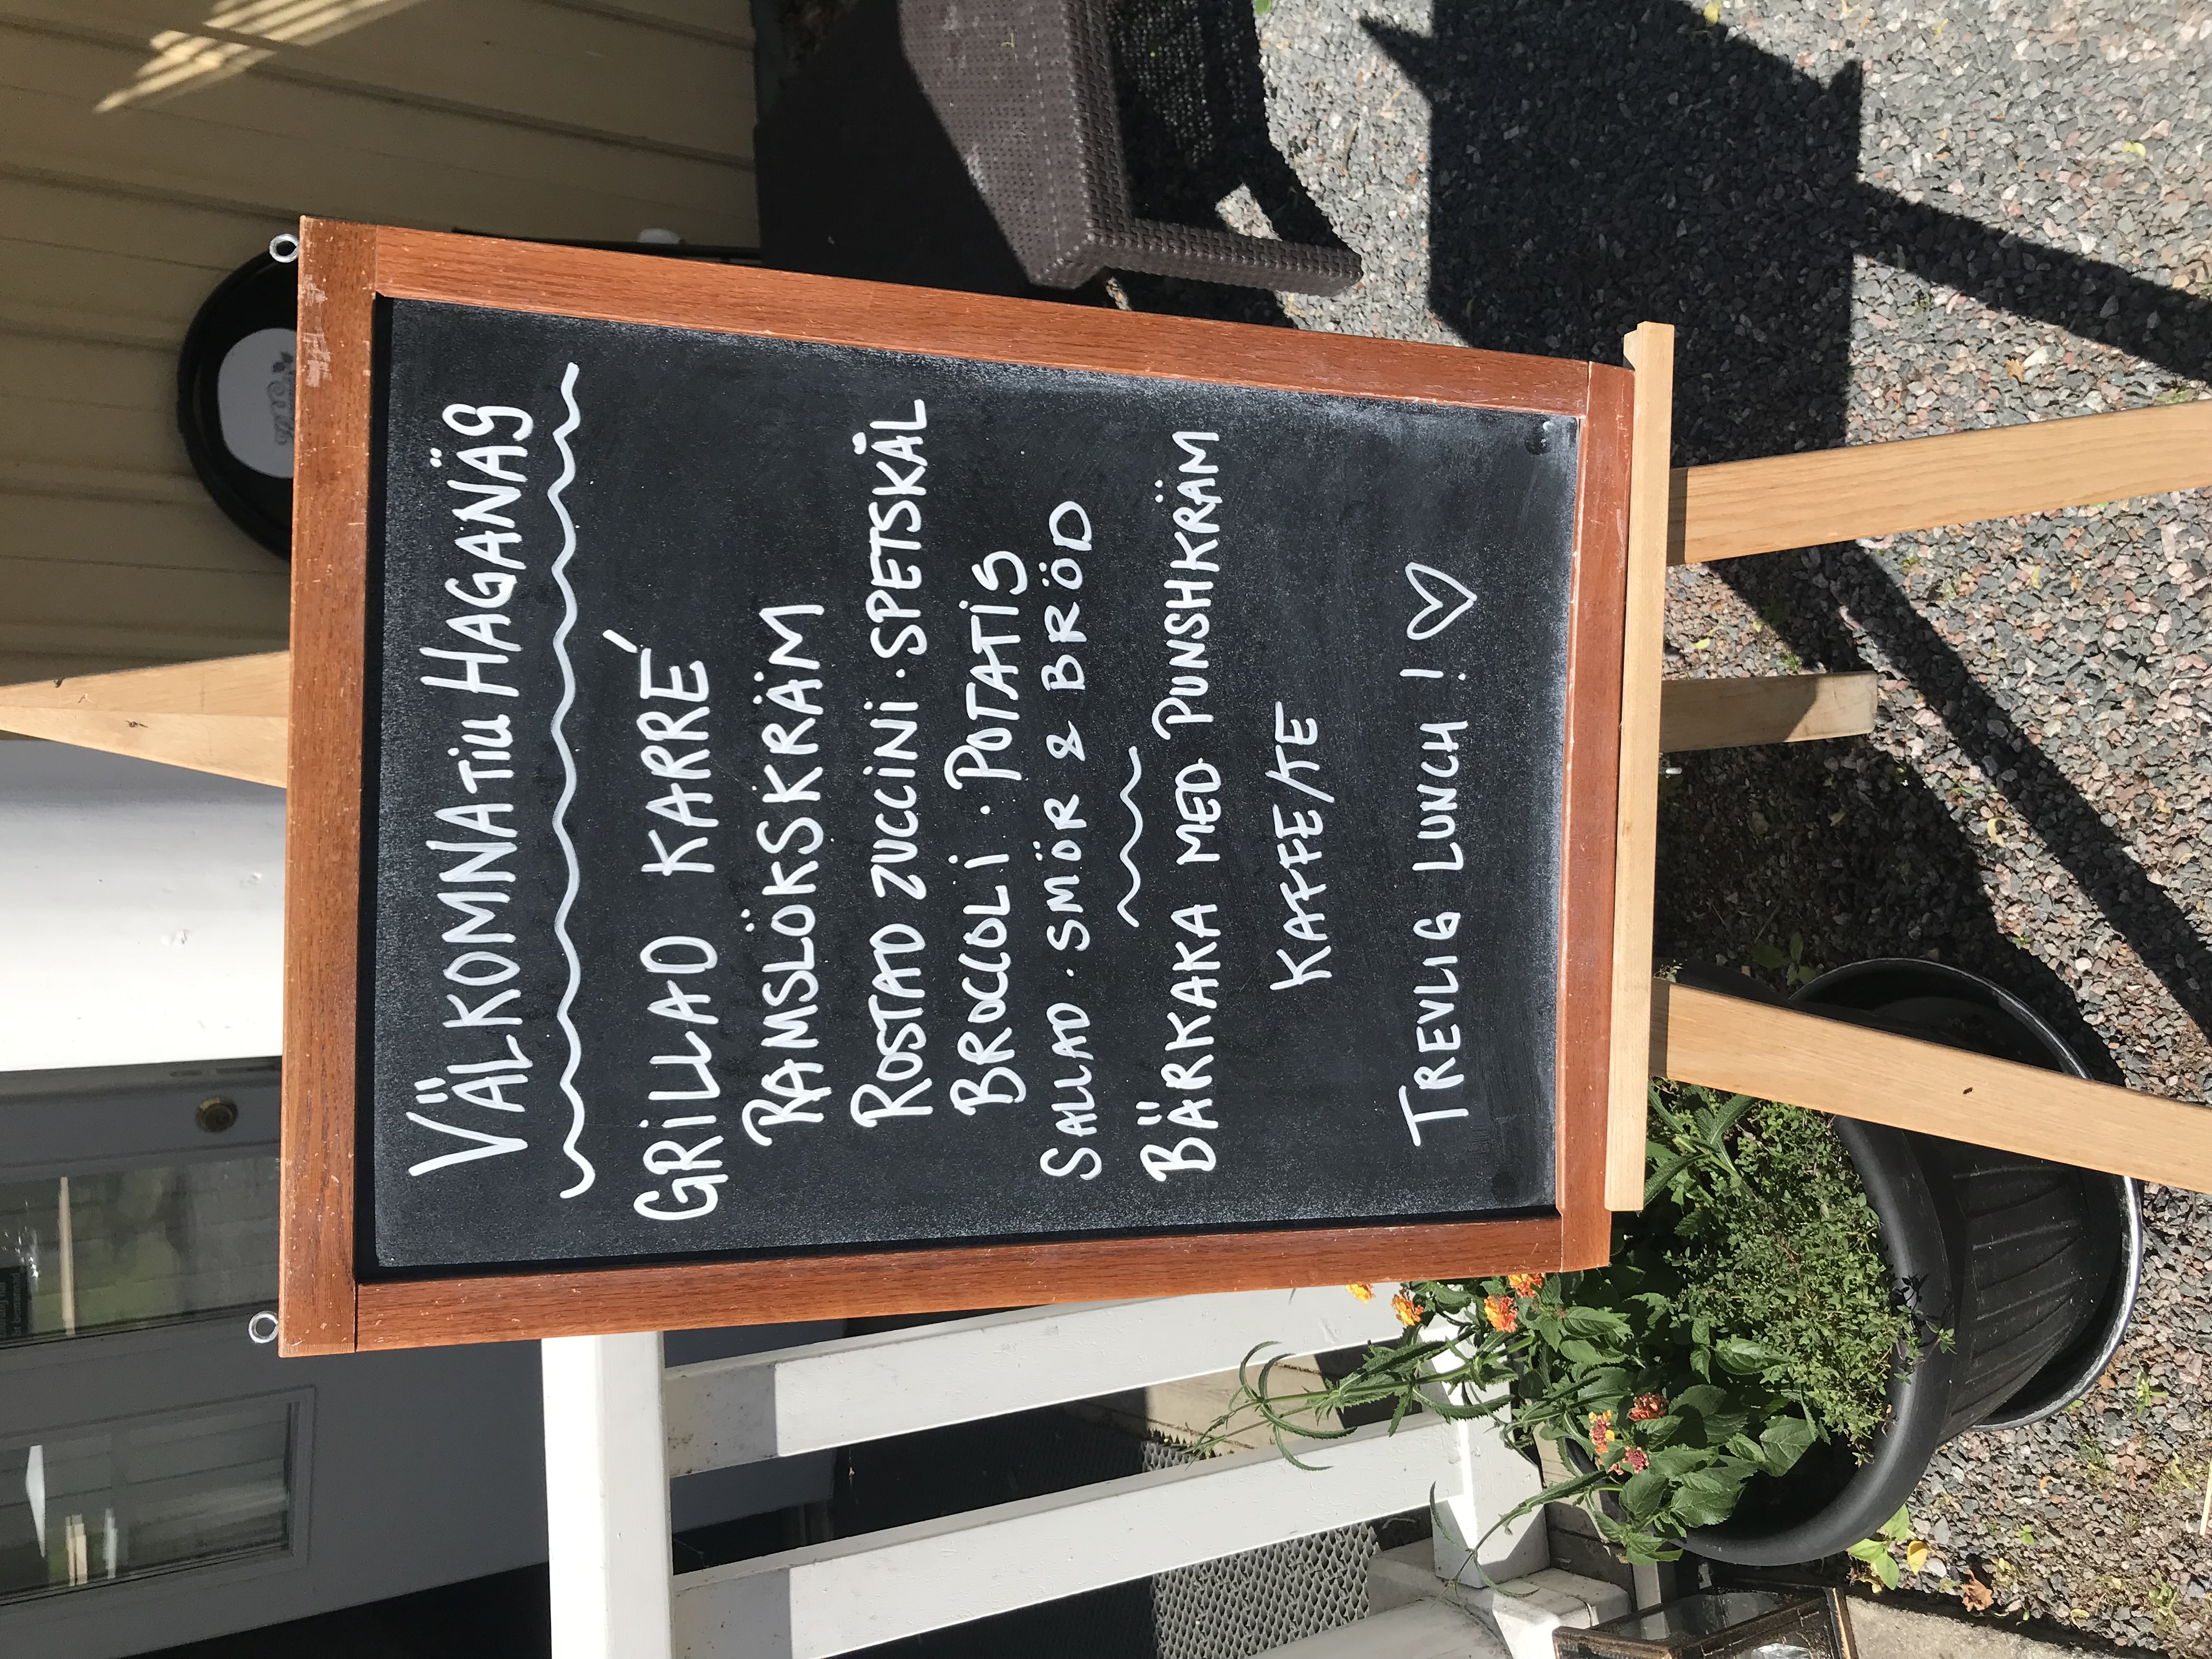 VÄLKOMNA Till HAGANÄS
GRILLAD KARRÉ
RAMSLÖKSKRÄM
ROSTAD ZUCCINI · SPETSKÅL
BROCCOLI · POTATIS
SALLAD · SMÖR & BRÖD
BÄRKAKA MED PUNSHKRÄM
KAFFE/TE
TREVLIG LUNCH!